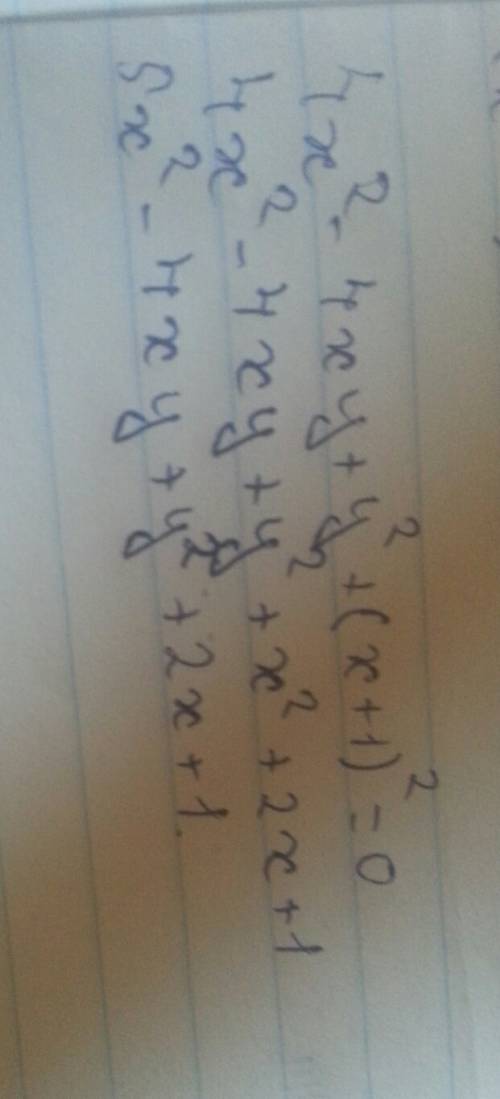 4x² - 4xy + y² + (x+1)² = 0
4x² - 4xy + y² + x² + 2x + 1
5x² - 4xy + y² + 2x + 1